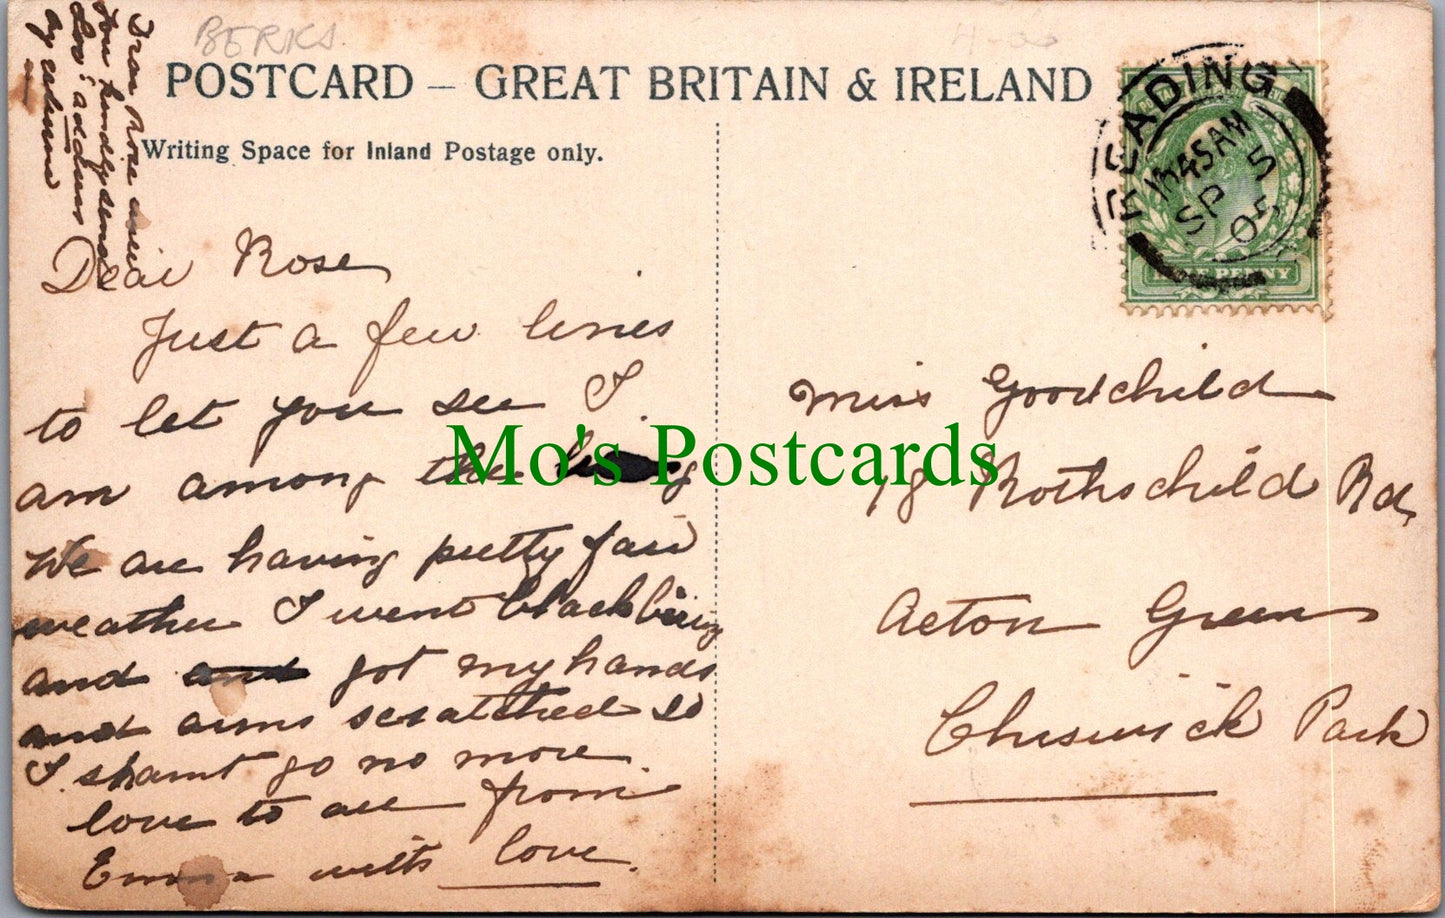 Dear Rose will
you kindly send
Loo's address
by return
BERKS
POSTCARD – GREAT BRITAIN & IRELAND
Writing Space for Inland Postage only.
READING
SP 5
05
HALF PENNY
Dear Rose
Just a few lines
to let you see I
am among the
We are having pretty fair
weather I went blackbering
and and got my hands
and arms scratched so
I shant go no more
love to all from
Emma with love.
Miss Goodchild
78 Rothschild Rd,
Acton Green
Chiswick Park
Mo's Postcards